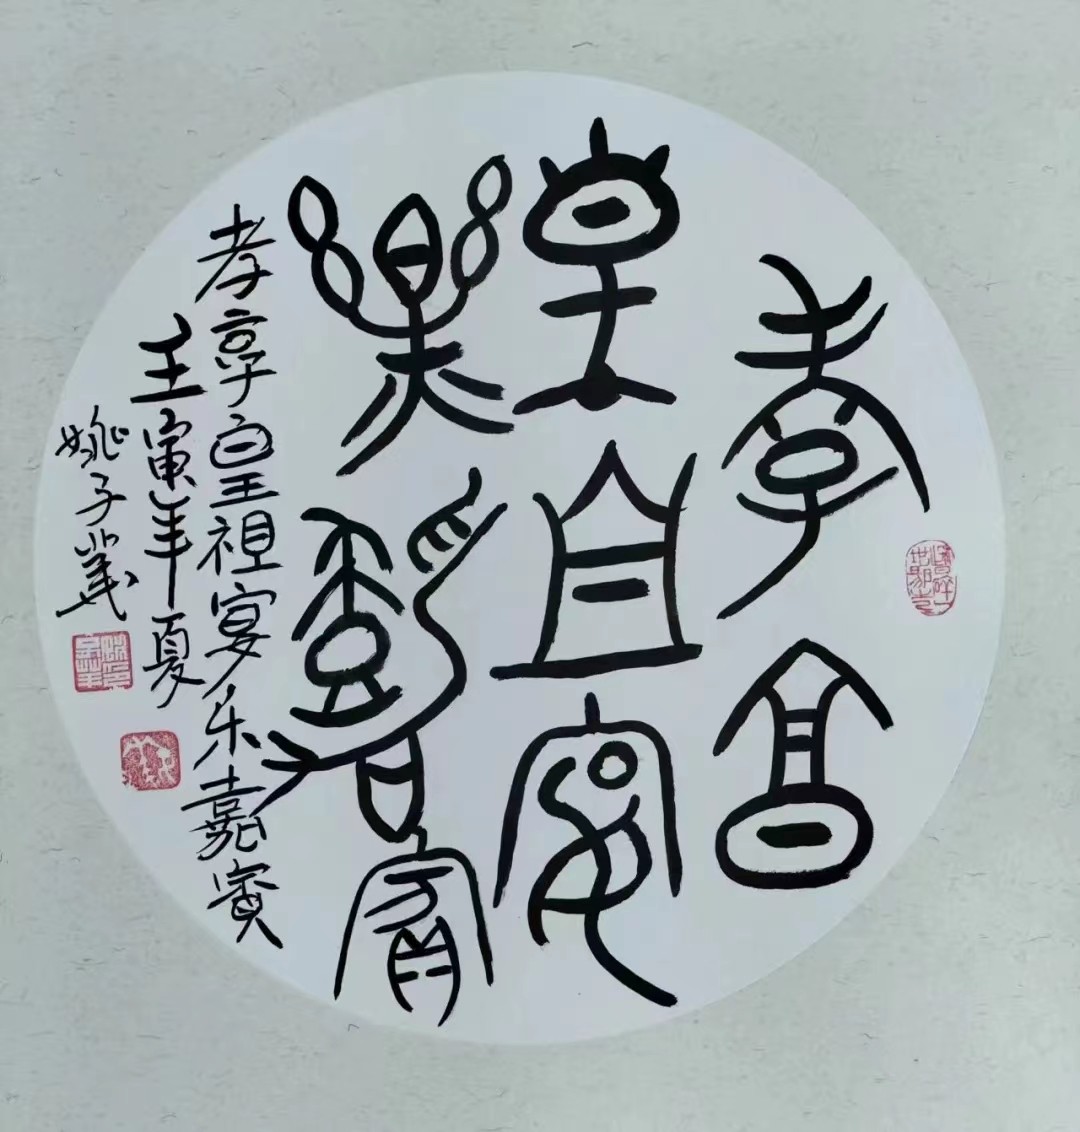 孝享
皇祖宴
樂嘉賓
孝享皇祖宴乐嘉賓
壬寅年夏
姚子義